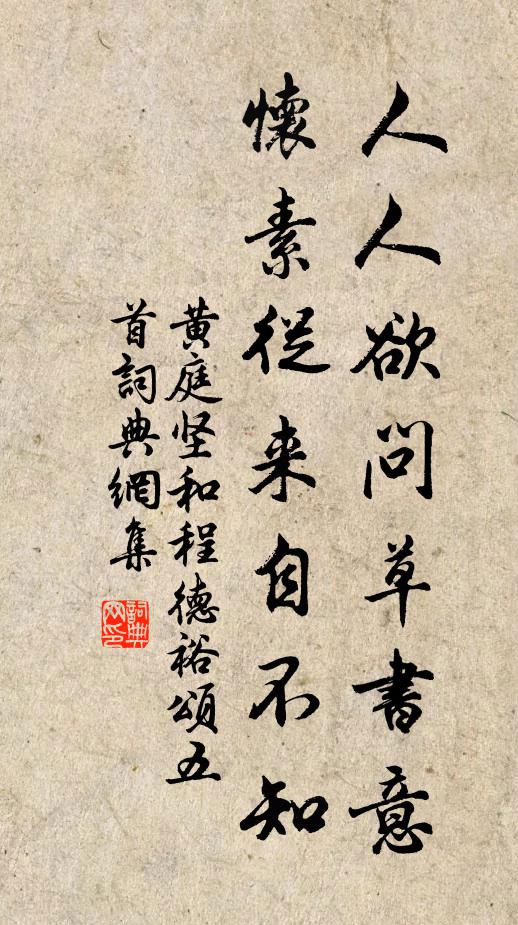 人人欲问草書意
懷素從来自不知
黄庭坚和程德裕頌五
首詞典網集
詞典网印